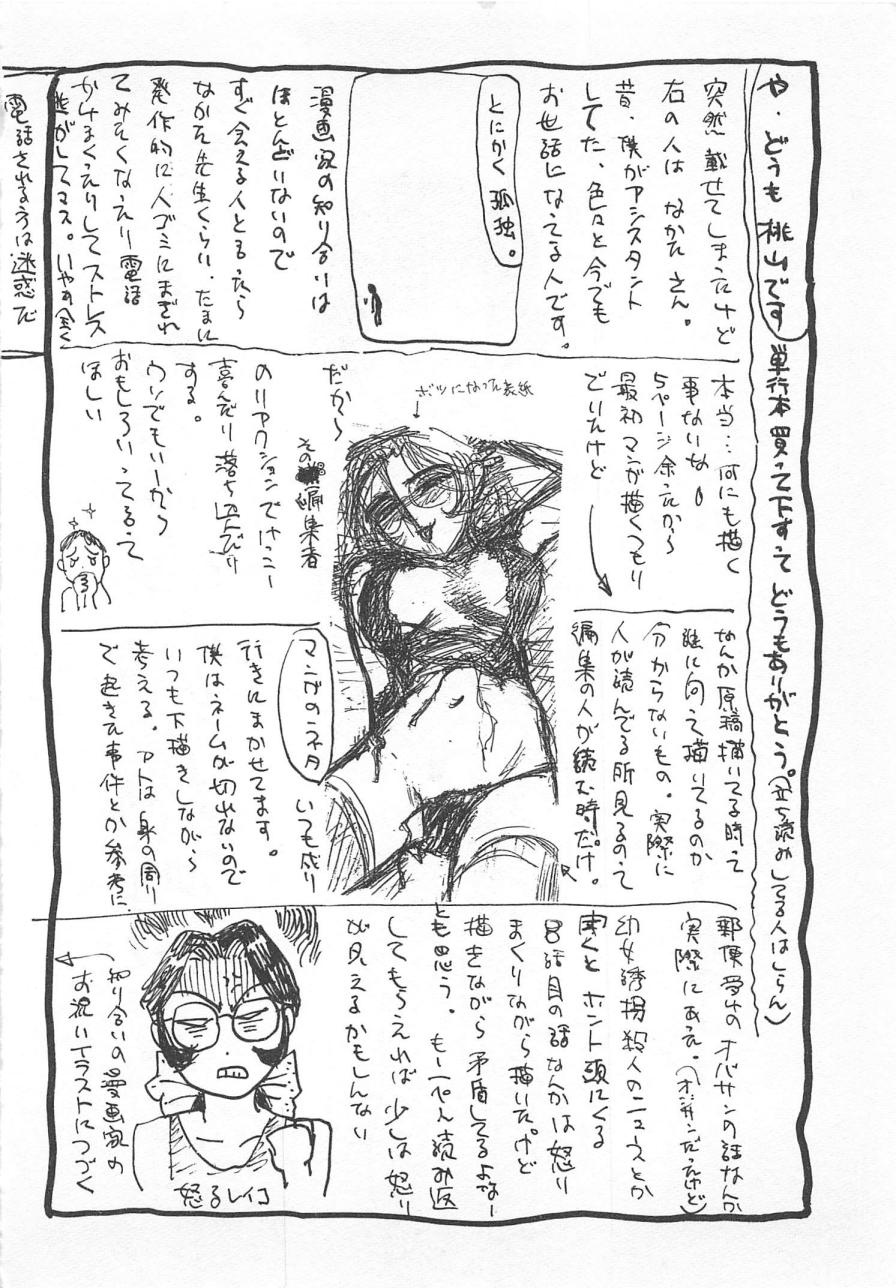 や、どうも桃山です
単行本買って下すってどうもありがとう。(立ち読みしてる人はしらん)
突然載せてしまったけど
右の人はなかたさん。
昔、僕がアシスタント
してた、色々と今でも
お世話になってる人です。
とにかく孤独。
漫画家の知り合いは
ほとんどいないので
すぐ会える人とゆったら
なかた先生くらい、たまに
発作的に人ゴミにまぎれ
てみたくなったり電話
かけまくったりしてストレス
逃がしてマス。いやがる
電話される方は迷惑だ
本当…何にも描く
事ないな
5ページ余ったから
最初マンガ描くつもり
でいたけど
なんか原稿描いてる時って
誰に向って描いてるのか
分からないもの。実際に
人が読んでる所見るのって
編集の人が読む時だけ。
ボツになった表紙
だから
その編集者
のリアクションでけっこー
喜んだり落ち込んだり
する。
ウソでもいーから
おもしろいってゆって
ほしい
マンガのネタ
いつも成り
行きにまかせてます。
僕はネームが切れないので
いつも下描きしながら
考える。アトは身の周り
で起きた事件とか参考に
郵便受けのオバサンの話なんか
実際にあった。(オジサンだったけど)
幼女誘拐殺人のニュースとか
聞くとホント頭にくる
8話目の話なんかは怒り
まくりながら描いたけど
描きながら矛盾してるよなー
とも思う。もーぺん読み返
してもらえれば少しは怒り
が見えるかもしんない
怒るレイコ
知り合いの漫画家の
お祝いイラストにつづく